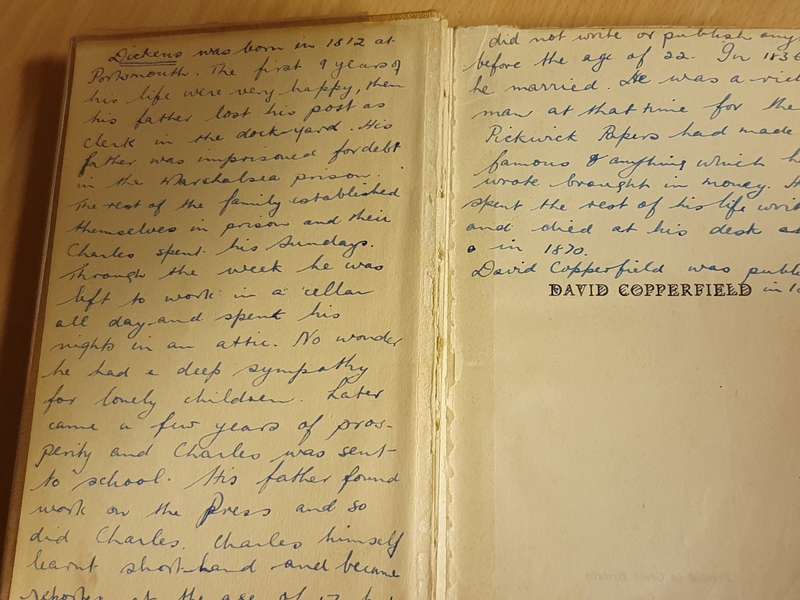 Dickens was born in 1812 at
Portsmouth. The first 9 years of
his life were very happy, then
his father lost his post as
clerk in the dock-yard. His
father was imprisoned for debt
in the Marshalsea prison.
The rest of the family established
themselves in prison and their
Charles spent his Sundays.
Through the week he was
left to work in a cellar
all day and spent his
nights in an attic. No wonder
he had a deep sympathy
for lonely children. Later
came a few years of pros-
perity and Charles was sent
to school. His father found
work on the Press and so
did Charles. Charles himself
learnt short-hand and became
reporter at the age of 17
did not write or publish any
before the age of 22. In 1836
he married. He was a
man at that time for the
Pickwick Papers had made
famous & anything which
wrote brought in money.
spent the rest of his life
and died at his desk
in 1870.
David Copperfield was
DAVID COPPERFIELD in